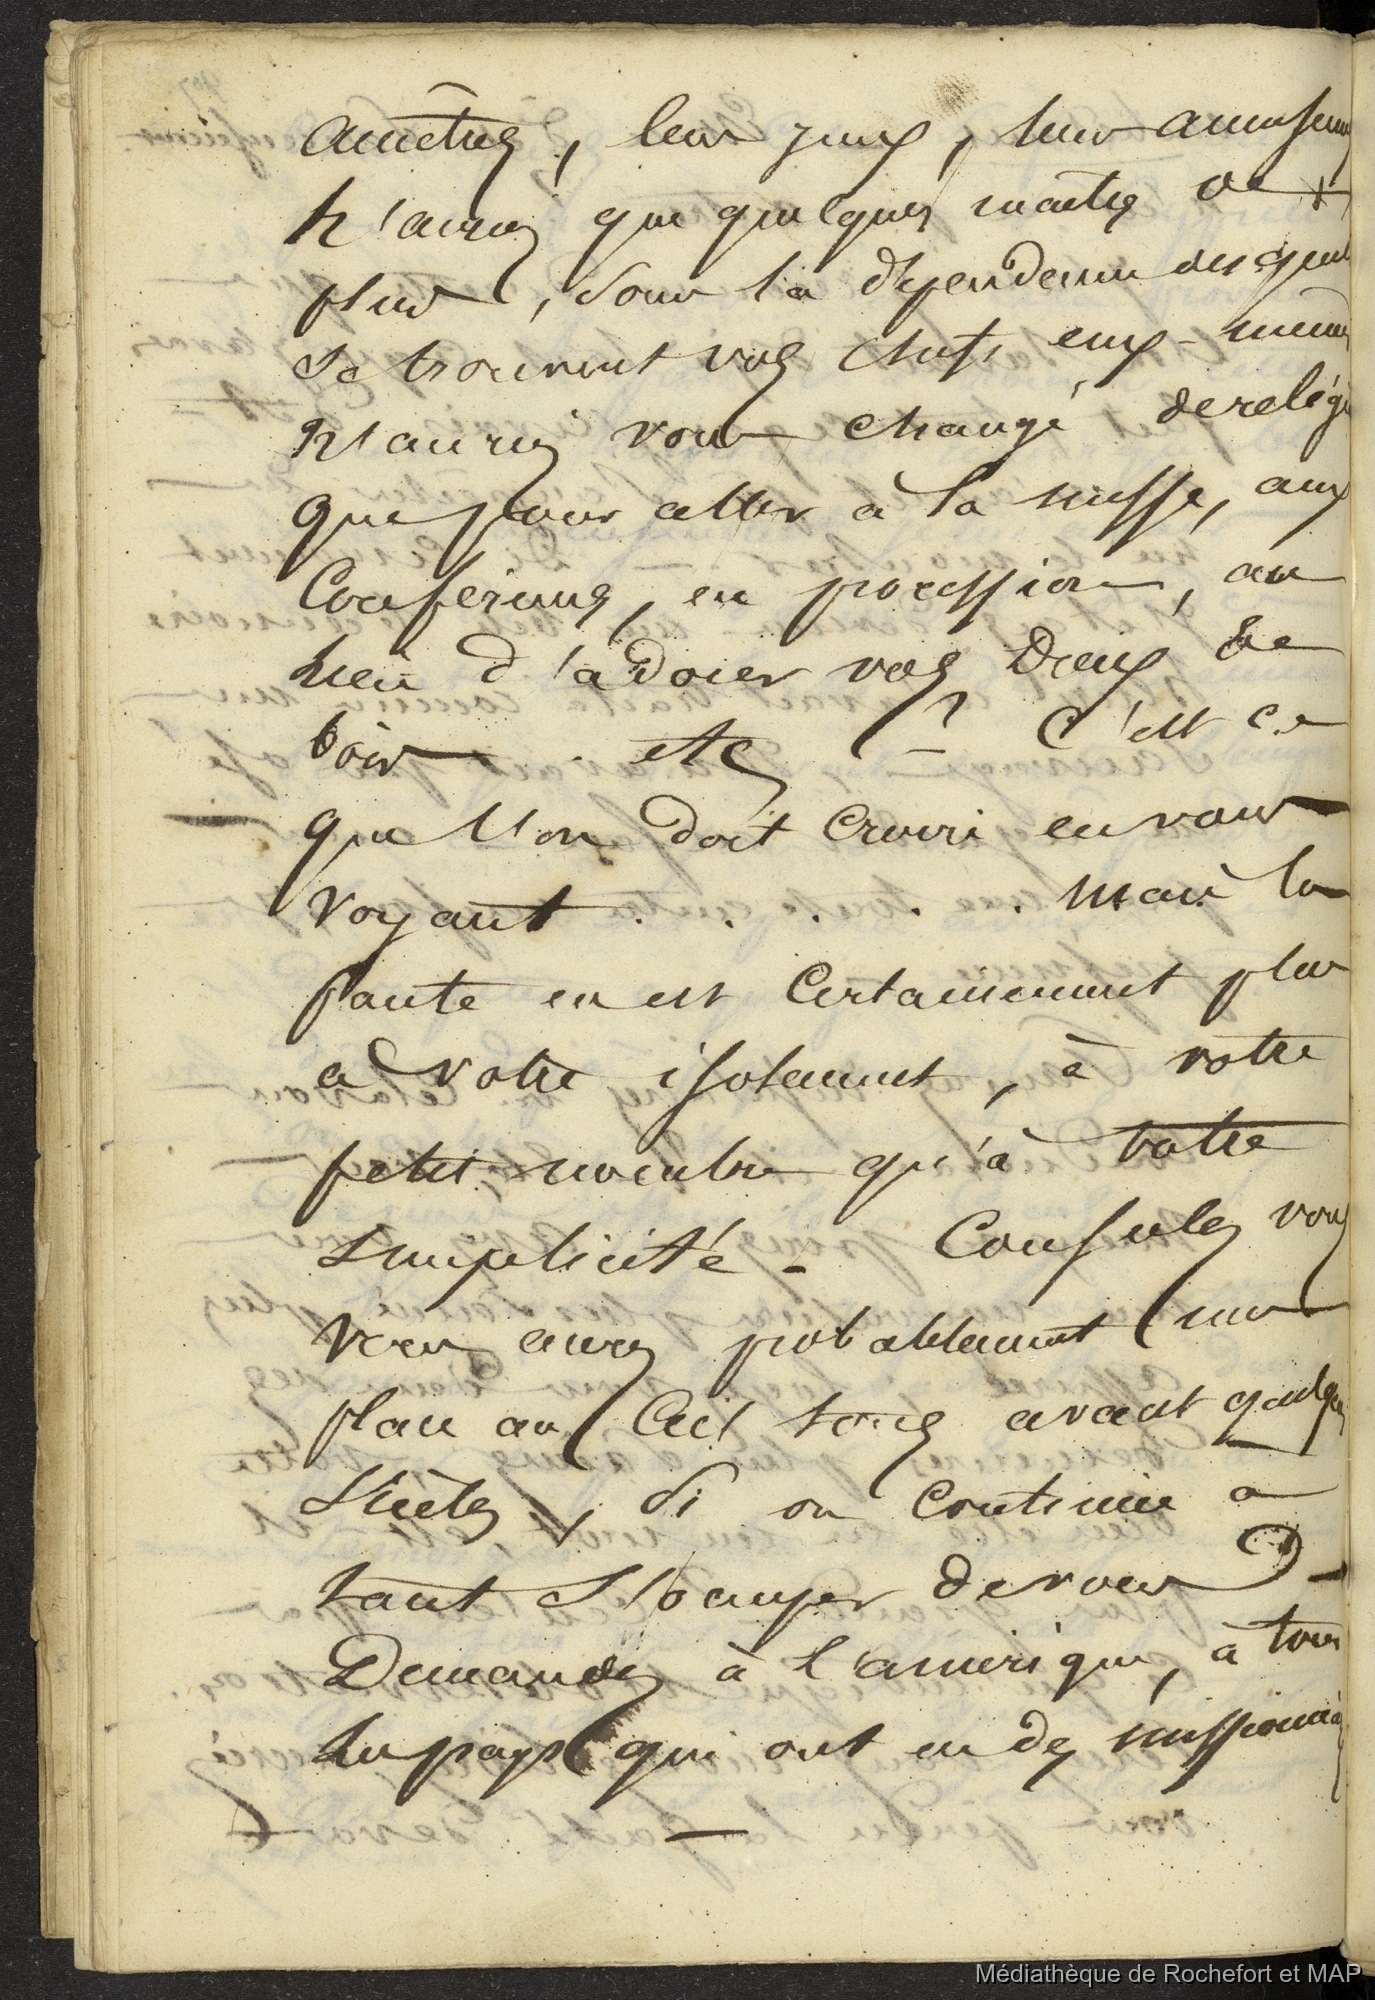 ancêtres, leur jeux, leur amusem
n'auriez que quelques maîtres de
plus, sous la dépendance desquels
se trouvent vos chefs eux-mêmes
n'auriez vous changé de religi
que pour aller à la messe, aux
Conférences, en procession, au
lieu d'adorer vos Dieux de
bois . etc ? _ C'est ce
que l'on doit croire en vous
voyant . . . . . Mais la
faute en est Certainement plus
à votre isolement, à votre
petit nombre qu'à votre
simplicité - Consolez vous
vous aurez probablement une
place au Ciel tous avant quelques
Siècles, si on continue à
tant s'occuper de vous -
Demandez à l'amérique, à tous
les pays qui ont eu des missionnai
Médiathèque de Rochefort et MAP